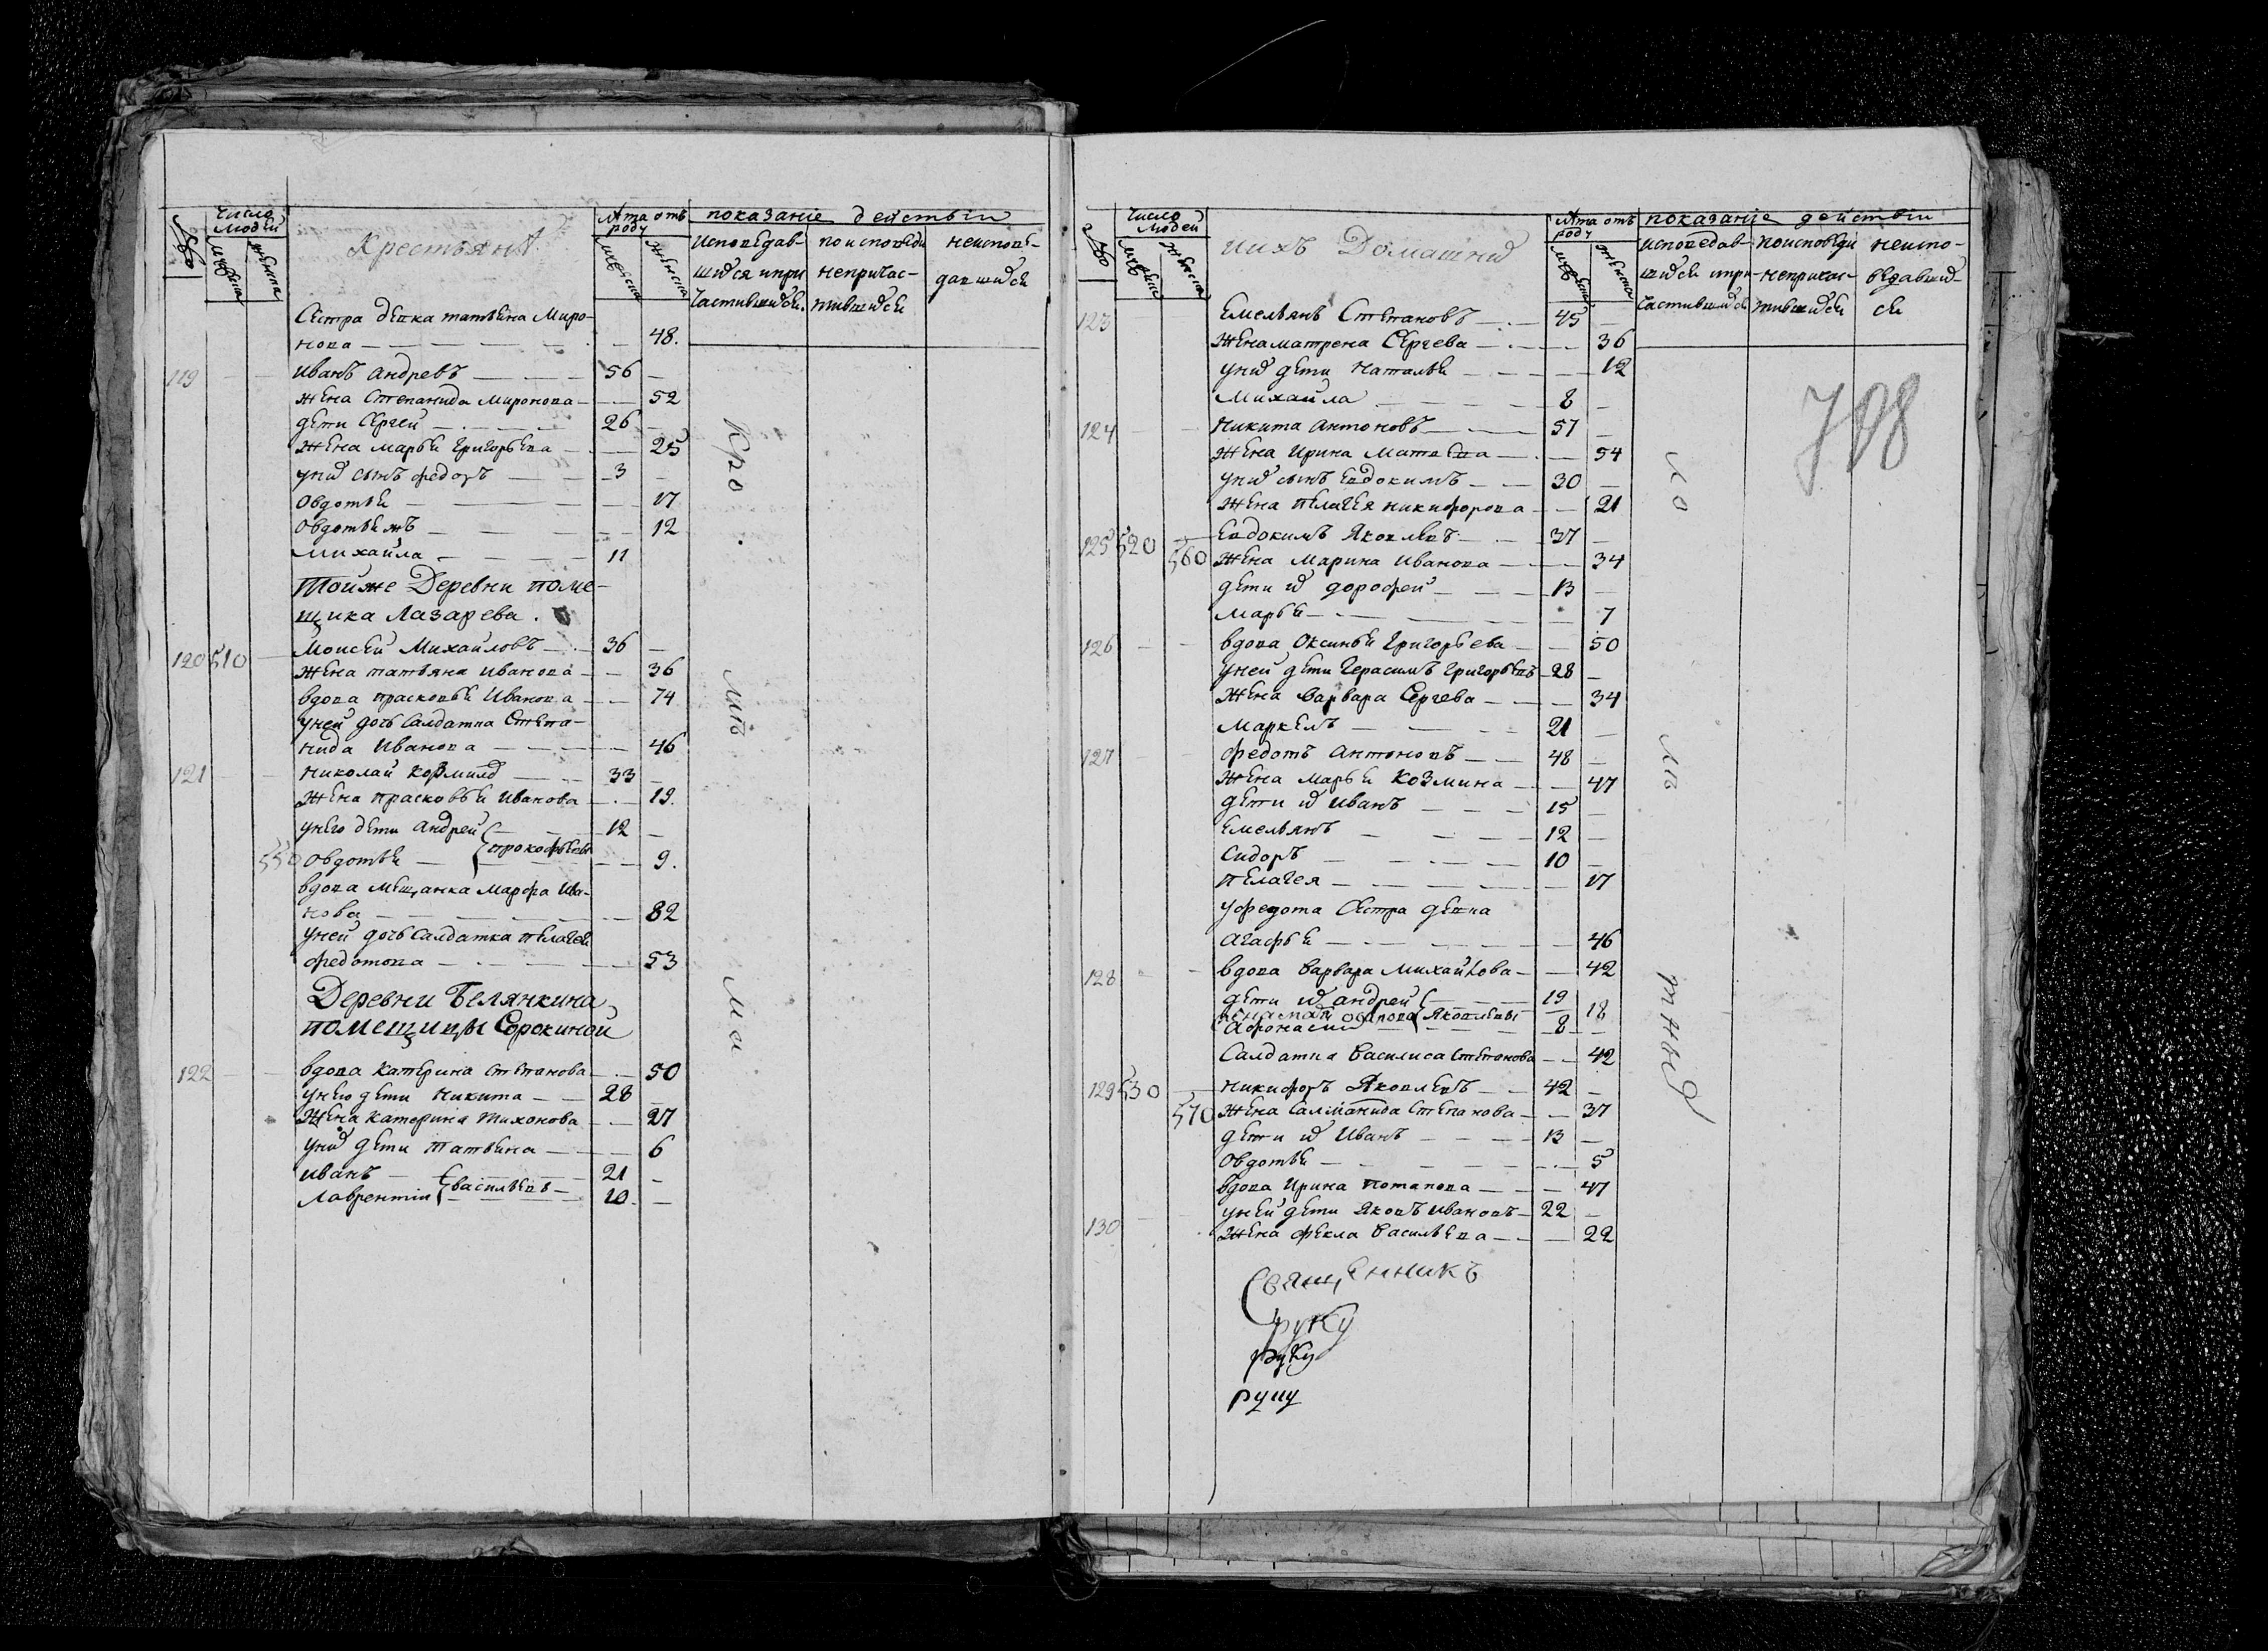 Число людей
Лѣта отъ роду
показаніе действіи
Крестьянѣ
исповѣдав-
шихся и при
частившихся
по исповѣди
непричас-
тившихся
неисповѣ-
давшихся
Сѣстра дѣвка татьяна Миро-
нова 48.
119 Иванъ Андревъ 56
жена Степанида Миронова 52
дѣти Сѣргей 26
жѣна марья Григорьева 25
у них сынъ федоръ 3
Овдотья 17
Овдотья жъ 12
михайла 11
Тойже Деревни поме-
щика Лазарева.
120 510 Моисей Михайловъ 36
жѣна татьяна Иванова 36
вдова прасковья Иванова 74
у ней дочь салдатка Степа-
нида Иванова 46
121 николай козминъ 33
жѣна прасковья Иванова 19.
у него дѣти андрей 12
прокофьевы
550 Овдотья 9.
вдова мещанка марфа Ива-
нова 82
у ней дочь салдатка пѣлагея
федотова 53
Деревни Белянкина
помещицы Сорокиной
122 вдова катерина степанова 50
у нею дети никита 28
жѣна катерина тихонова 27
у них дѣти татьяна 6
иванъ 21
васильевъ
лаврентіи 10
Кро.
мѣ
ма
Число людей
ихъ Домашних
Лѣта отъ роду
показаніе действіи
исповедав-
шихся при-
частившихся
по исповѣди
неприхас-
тившихся
неиспо-
вѣдавших-
ся
123 Емельянъ Степановъ 45
жена матрена Сергева 36
у них дѣти наталья 12
михайла 8
124 никита антоновъ 57
жѣна ирина матвева 54
у них сынъ Евдокимъ 30
жѣна пѣлагея никифорова 21
125 520 Евдокимъ Яковлевъ 37
560 жѣна марина Иванова 34
дѣти их дорофей 13
марья 7
126 вдова Оксинья Григорьева 50
у ней дѣти Герасимъ Григорьевъ 28
жѣна варвара Сергева 34
маркелъ 21
127 федотъ антоновъ 48
жѣна марья козмина 47
дѣти их иванъ 15
емельянъ 12
сидоръ 10
пѣлагея 17
у федота сѣстра девка
агафья 46
128 вдова варвара михайлова 42
дѣти их андрей 19
Яковлевы
18
Афонасии 8
Салдатка василиса степанова 42
129 530 никифоръ Яковлевъ 42
570 жѣна Салманида Степанова 37
дѣти их иванъ 13
Овдотья 5
вдова Ирина потапова 47
у ней дѣти Яковъ ивановъ 22
130 жѣна фекла васильева 22
Священникъ
руку
руку
руку
708